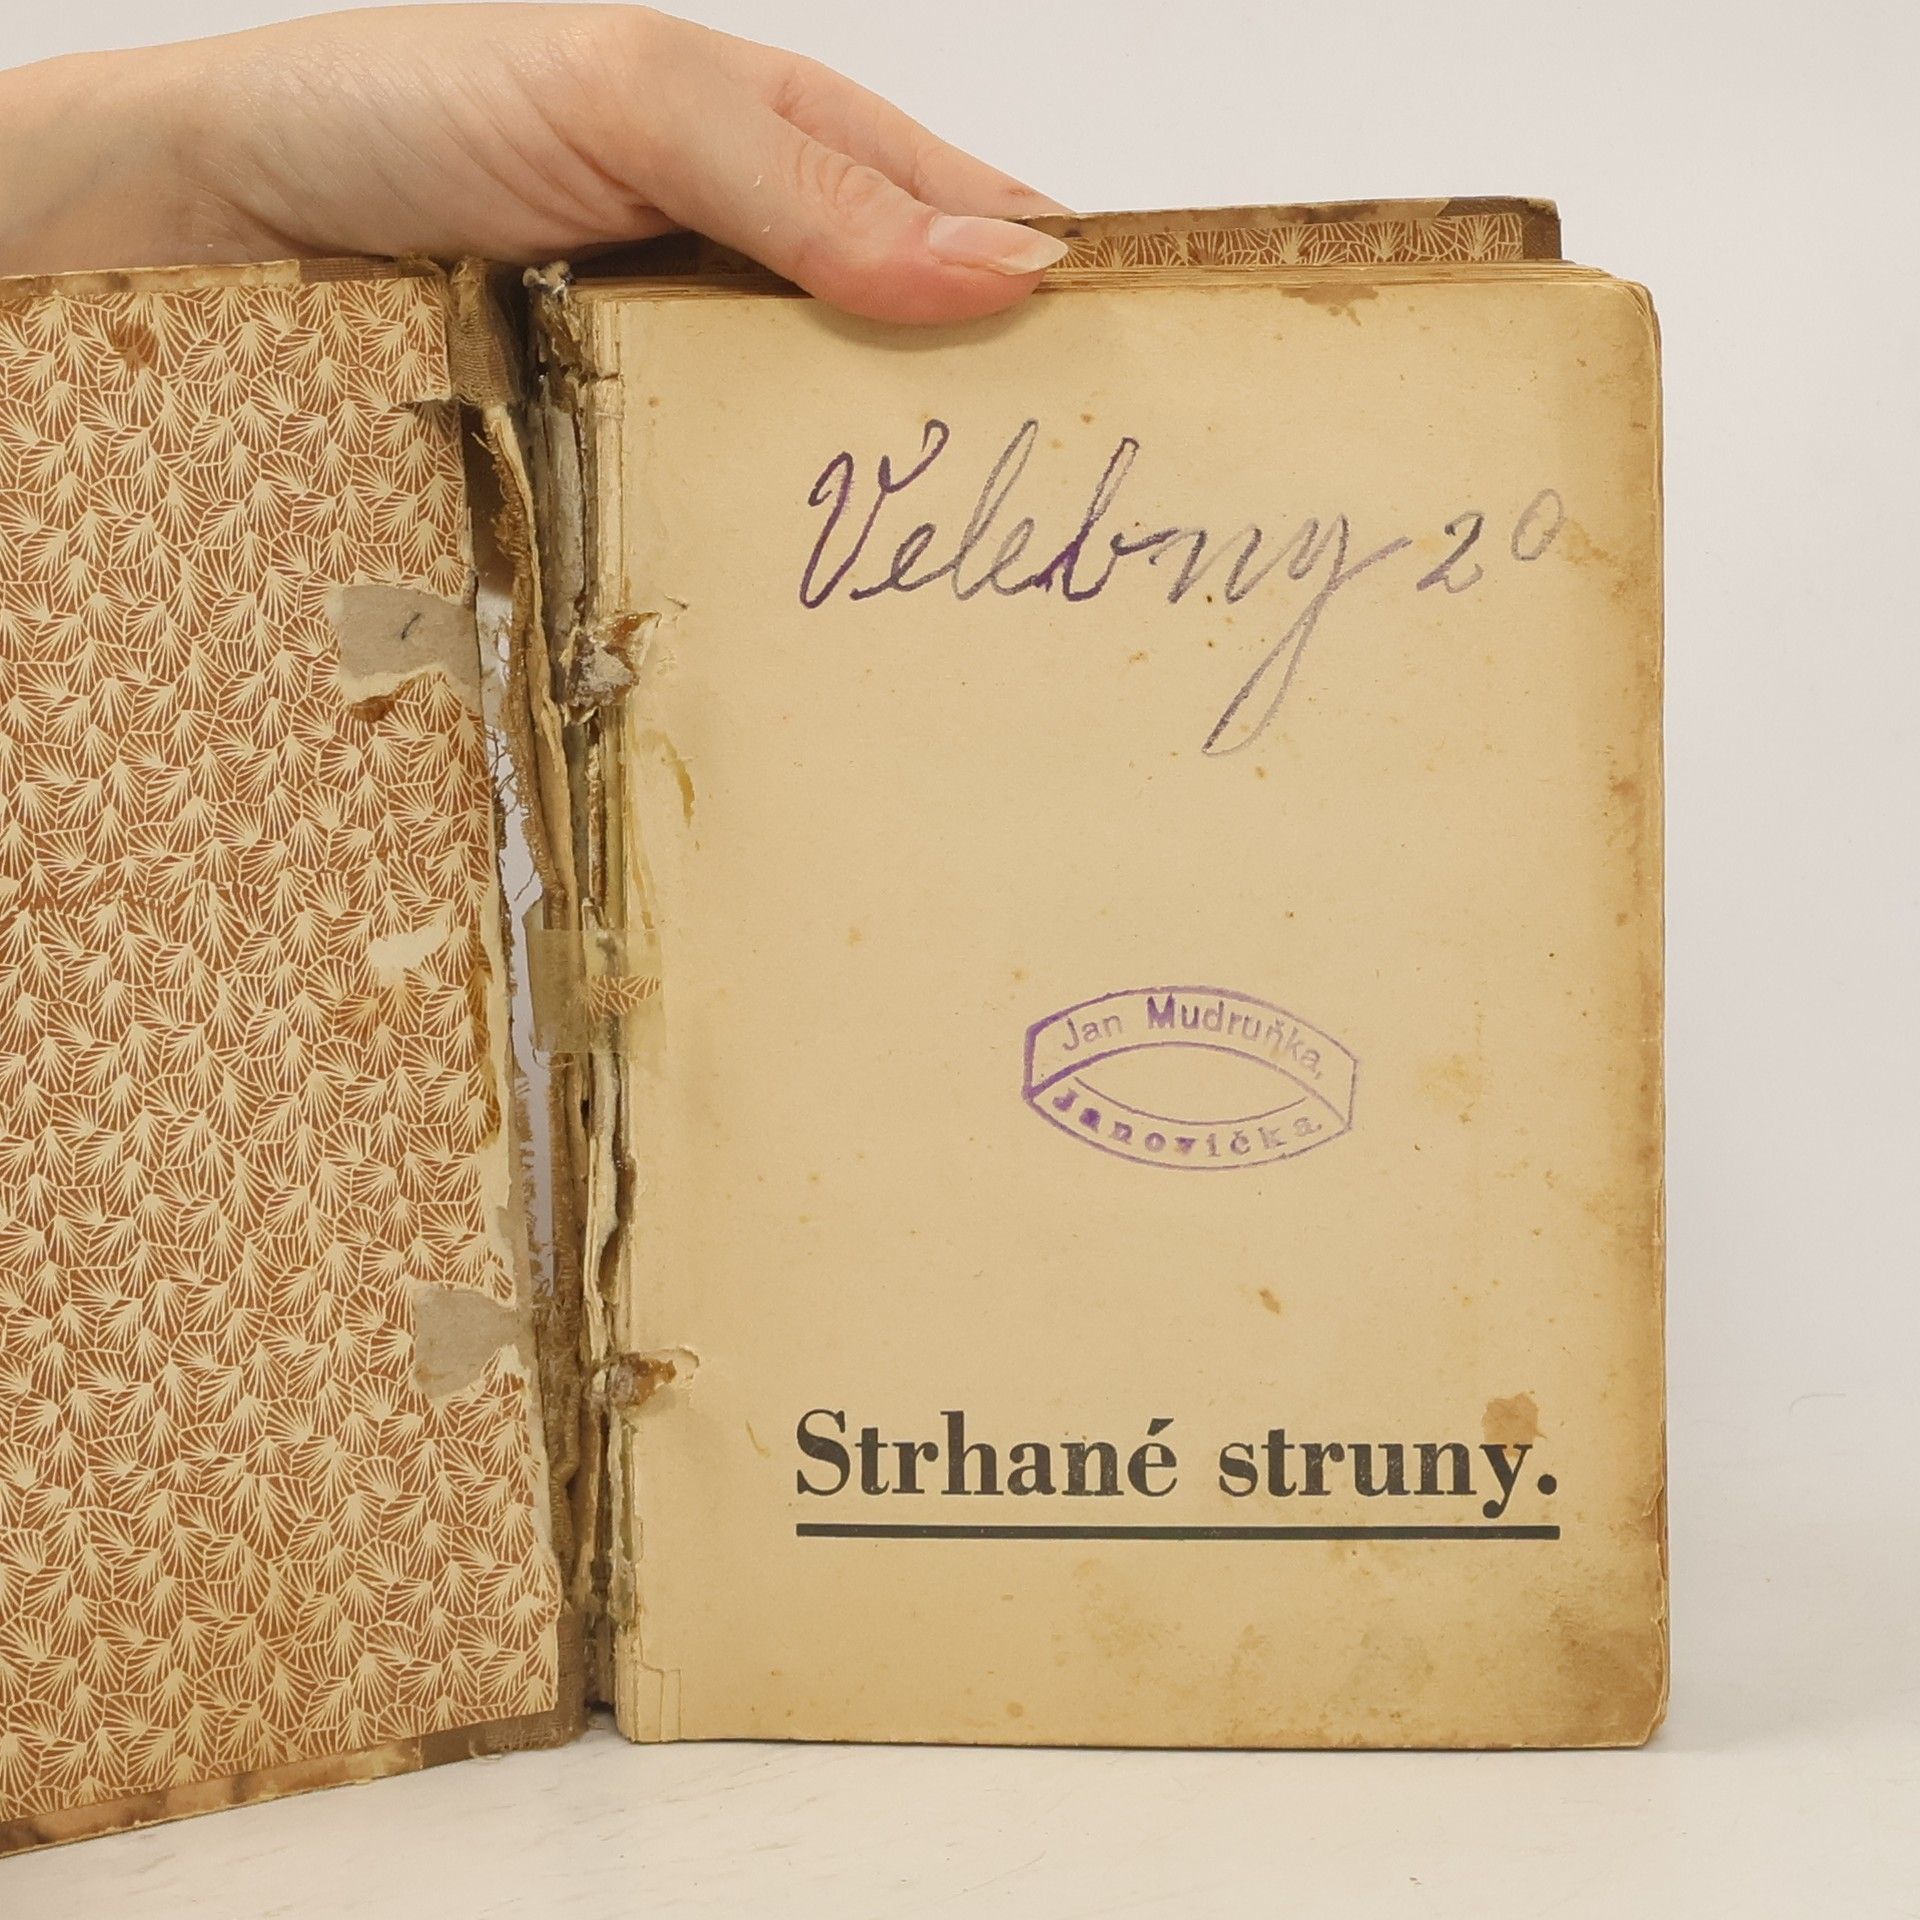 Velebny 20
Jan Mudruňka,
Janovička
Strhané struny.